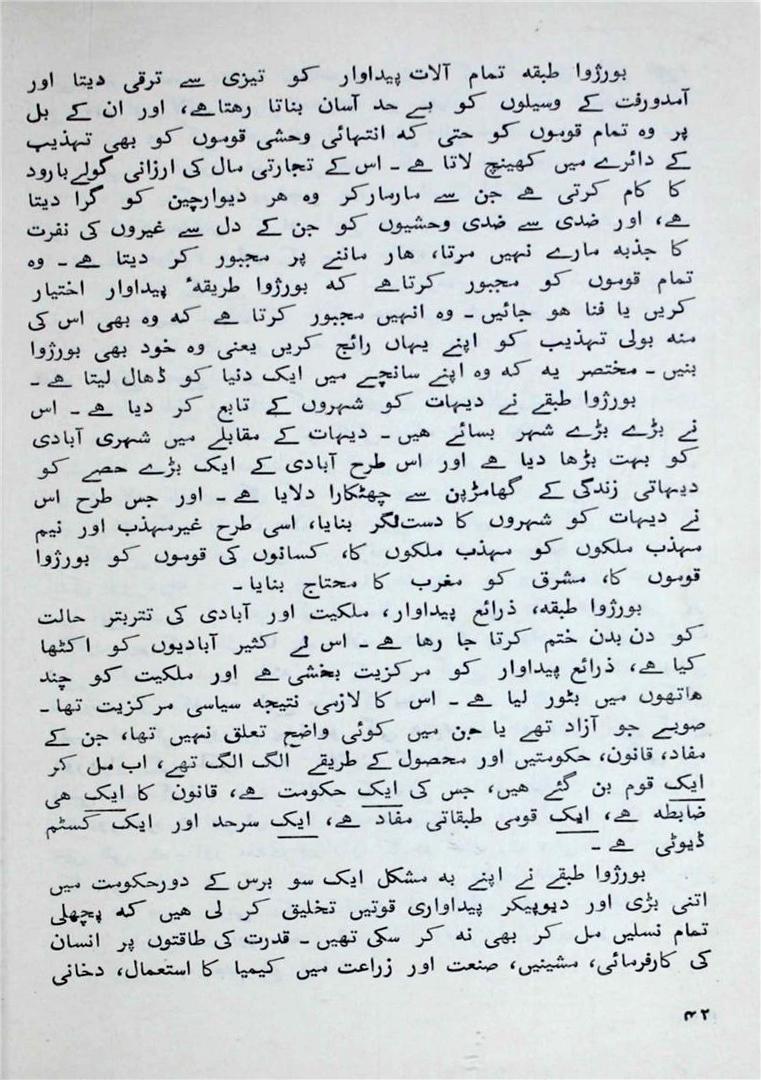 بورژوا طبقه تمام آلات پیداوار کو تیزی سے ترقی دیتا اور
آمدورفت کے وسیلوں کو بے حد آسان بناتا رهتاهے، اور ان کے بل
پر وه تمام قوموں کو حتی که انتهائی وحشی قوموں کو بھی تهذیب
کے دائرے میں کھینچ لاتا هے ۔ اس کے تجارتی مال کی ارزانی گولے بارود
کا کام کرتی هے جن سے مارمارکر وه هر دیوارچین کو گرا دیتا
هے، اور ضدی سے ضدی وحشیوں کو جن کے دل سے غیروں کی نفرت
کا جذبه مارے نهیں مرتا، هار ماننے پر مجبور کر دیتا هے ۔ وه
تمام قوموں کو مجبور کرتاهے که بورژوا طریقهٔ پیداوار اختیار
کریں یا فنا هو جائیں ۔ وه انهیں مجبور کرتا هے که وه بھی اس کی
منه بولی تهذیب کو اپنے یهاں رائج کریں یعنی وه خود بھی بورژوا
بنیں ۔ مختصر یه که وه اپنے سانچے میں ایک دنیا کو ڈھال لیتا هے ۔
بورژوا طبقے نے دیهات کو شهروں کے تابع کر دیا هے ۔ اس
نے بڑے بڑے شهر بسائے هیں ۔ دیهات کے مقابلے میں شهری آبادی
کو بهت بڑھا دیا هے اور اس طرح آبادی کے ایک بڑے حصے کو
دیهاتی زندگی کے گھامڑپن سے چھٹکارا دلایا هے ۔ اور جس طرح اس
نے دیهات کو شهروں کا دست‌نگر بنایا، اسی طرح غیرمهذب اور نیم
مهذب ملکوں کو مهذب ملکوں کا، کسانوں کی قوموں کو بورژوا
قوموں کا، مشرق کو مغرب کا محتاج بنایا ۔
بورژوا طبقه، ذرائع پیداوار، ملکیت اور آبادی کی تتربتر حالت
کو دن بدن ختم کرتا جا رها هے ۔ اس نے کثیر آبادیوں کو اکٹھا
کیا هے، ذرائع پیداوار کو مرکزیت بخشی هے اور ملکیت کو چند
هاتھوں میں بٹور لیا هے ۔ اس کا لازمی نتیجه سیاسی مرکزیت تھا ۔
صوبے جو آزاد تھے یا جن میں کوئی واضح تعلق نهیں تھا، جن کے
مفاد، قانون، حکومتیں اور محصول کے طریقے الگ الگ تھے، اب مل کر
ایک قوم بن گئے هیں، جس کی ایک حکومت هے، قانون کا ایک هی
ضابطه هے، ایک قومی طبقاتی مفاد هے، ایک سرحد اور ایک کسٹم
ڈیوٹی هے ۔
بورژوا طبقے نے اپنے به مشکل ایک سو برس کے دورحکومت میں
اتنی بڑی اور دیوپیکر پیداواری قوتیں تخلیق کر لی هیں که پچھلی
تمام نسلیں مل کر بھی نه کر سکی تھیں ۔ قدرت کی طاقتوں پر انسان
کی کارفرمائی، مشینیں، صنعت اور زراعت میں کیمیا کا استعمال، دخانی
۴۲